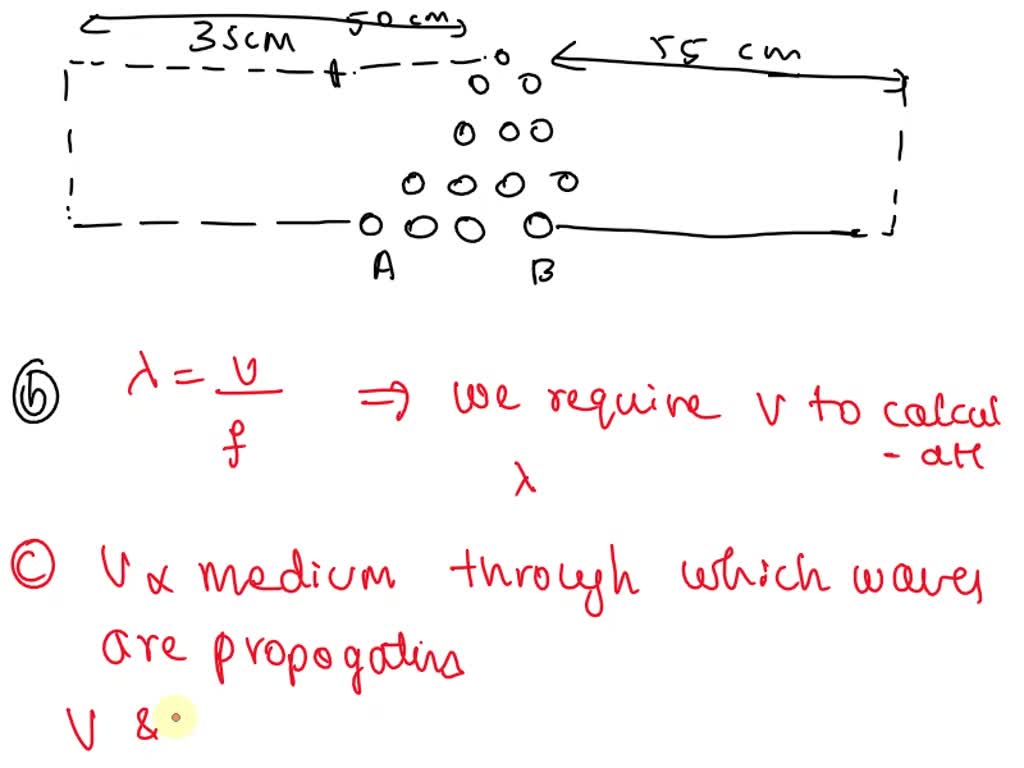 50 cm
35cm
55 cm
A B
(b) λ = v/f ⇒ we require v to calcul
- ate
λ
(c) V α medium through which waves
are propogatins
V &